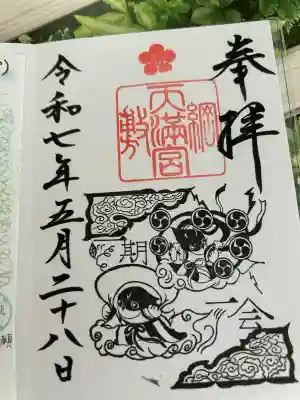 奉拝
綱敷天満宮
一期一会
令和七年五月二十八日
願